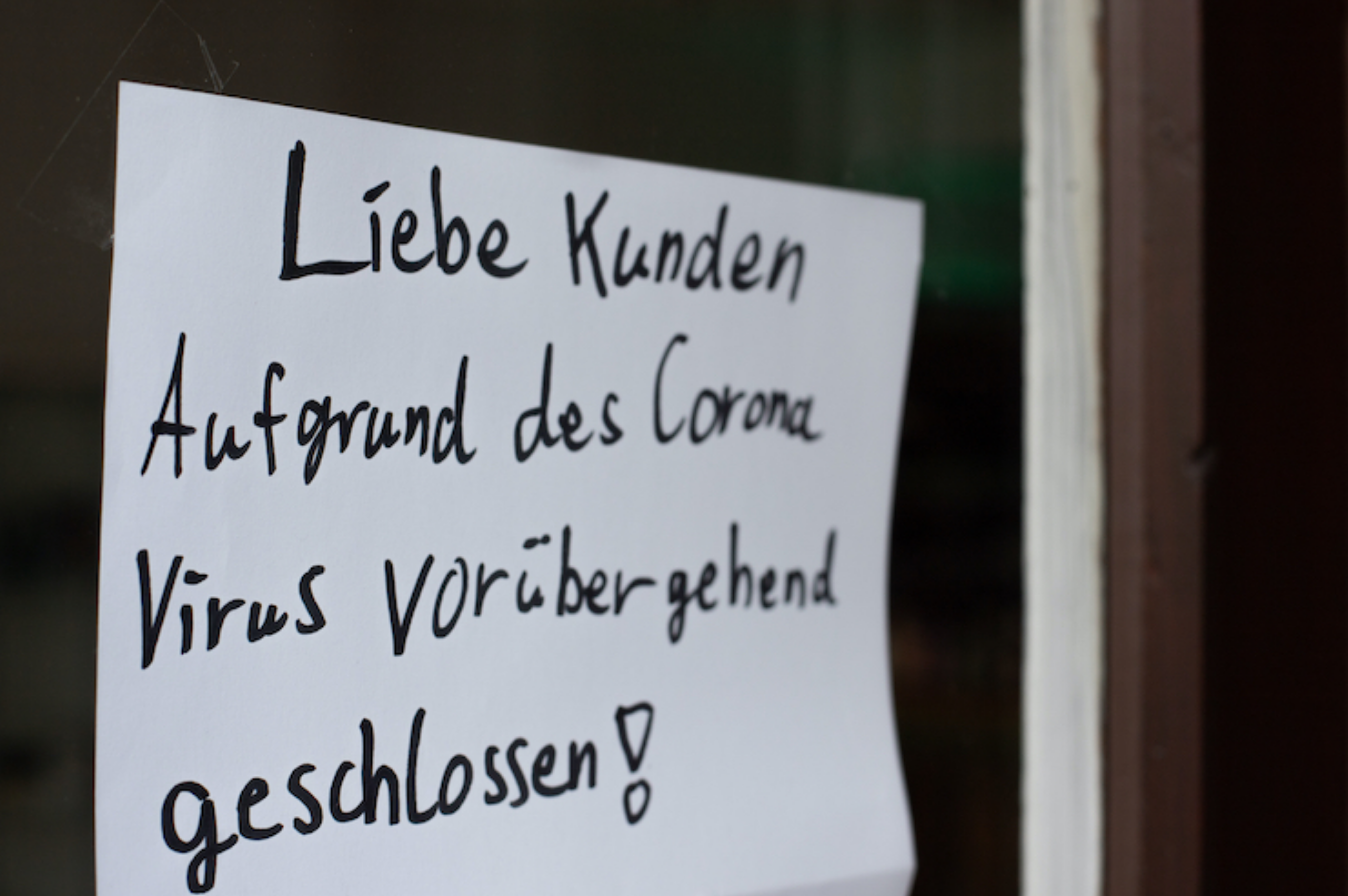 Liebe Kunden
Aufgrund des Corona
Virus vorübergehend
geschlossen!